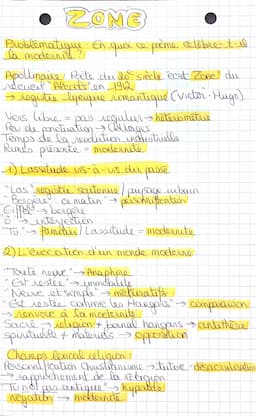 ZONE
Problématique : En quoi ce poème célèbre-t-il
la modernité ?
Apollinaire, Poète du 20e siècle écrit "Zone" du
recueil "Alcools" en 1912
→ registre lyrique romantique (Victor Hugo)
Vers libre = pas régulier → hétérométrie
Peu de ponctuation → Collages
Temps de la révolution industrielle
présente = modernité
1) Lassitude vis-à-vis du passé
"Las" registre / paysage urbain
"Bergère" ce matin → personnification
Eiffel → bergère
Ô → interjection
"Tu" → familier / Lassitude = modernité
2) L'évocation d'un monde moderne
"Toute neuve" → Anaphore
"Est restée" → immobilité
"Neuve et simple" → mélioratifs
"Est restée comme les Hangars" → comparaison
→ renvoie à la modernité
Sacré → religion + banal hangars → antithèse
spirituelle + matériels → opposition
Champs lexical religion :
Personnification Christianisme → tutoie
→ rapprochement de la religion
"Tu n'es pas antique" → hyperbole
négation → modernité